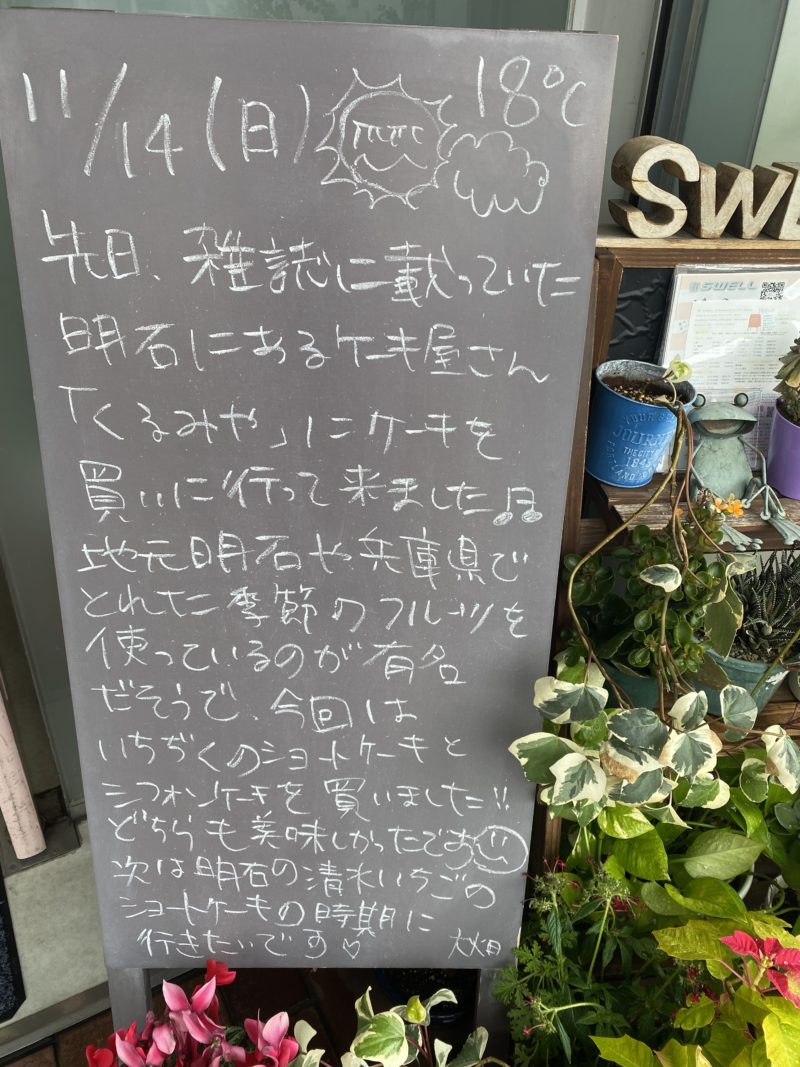 11/14(日) 18℃
先日、雑誌に載っていた
明石にあるケーキ屋さん
「くるみや」にケーキを
買いに行って来ました♫
地元明石や兵庫県で
とれた季節のフルーツを
使っているのが有名
だそうで、今回は
いちぢくのショートケーキと
シフォンケーキを買いました!!
どちらも美味しかったです
次は明石の清水いちごの
ショートケーキの時期に
行きたいです♡
SWE
SWELL
JOURNEY
THE CITY